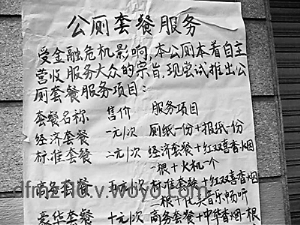 公厕套餐服务
受金融危机影响,本公厕本着自主
营收服务大众的宗旨,现尝试推出公
厕套餐服务项目:
套餐名称 售价 服务项目
经济套餐 一元/次 厕纸一份+报纸一份
标准套餐 二元/次 经济套餐+红双喜香烟
一根+火机一个
商务套餐 五元/次 标准套餐+红双喜香烟
一根+优美音乐畅听
豪华套餐 十元/次 商务套餐+中华香烟一根